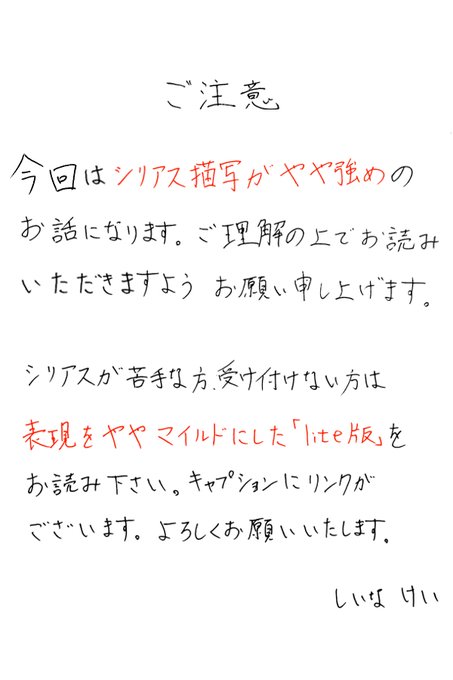 ご注意
今回はシリアス描写がやや強めの
お話になります。ご理解の上でお読み
いただきますよう お願い申し上げます。
シリアスが苦手な方、受け付けない方は
表現をややマイルドにした「lite版」を
お読み下さい。キャプションにリンクが
ございます。よろしくお願いいたします。
しいな けい